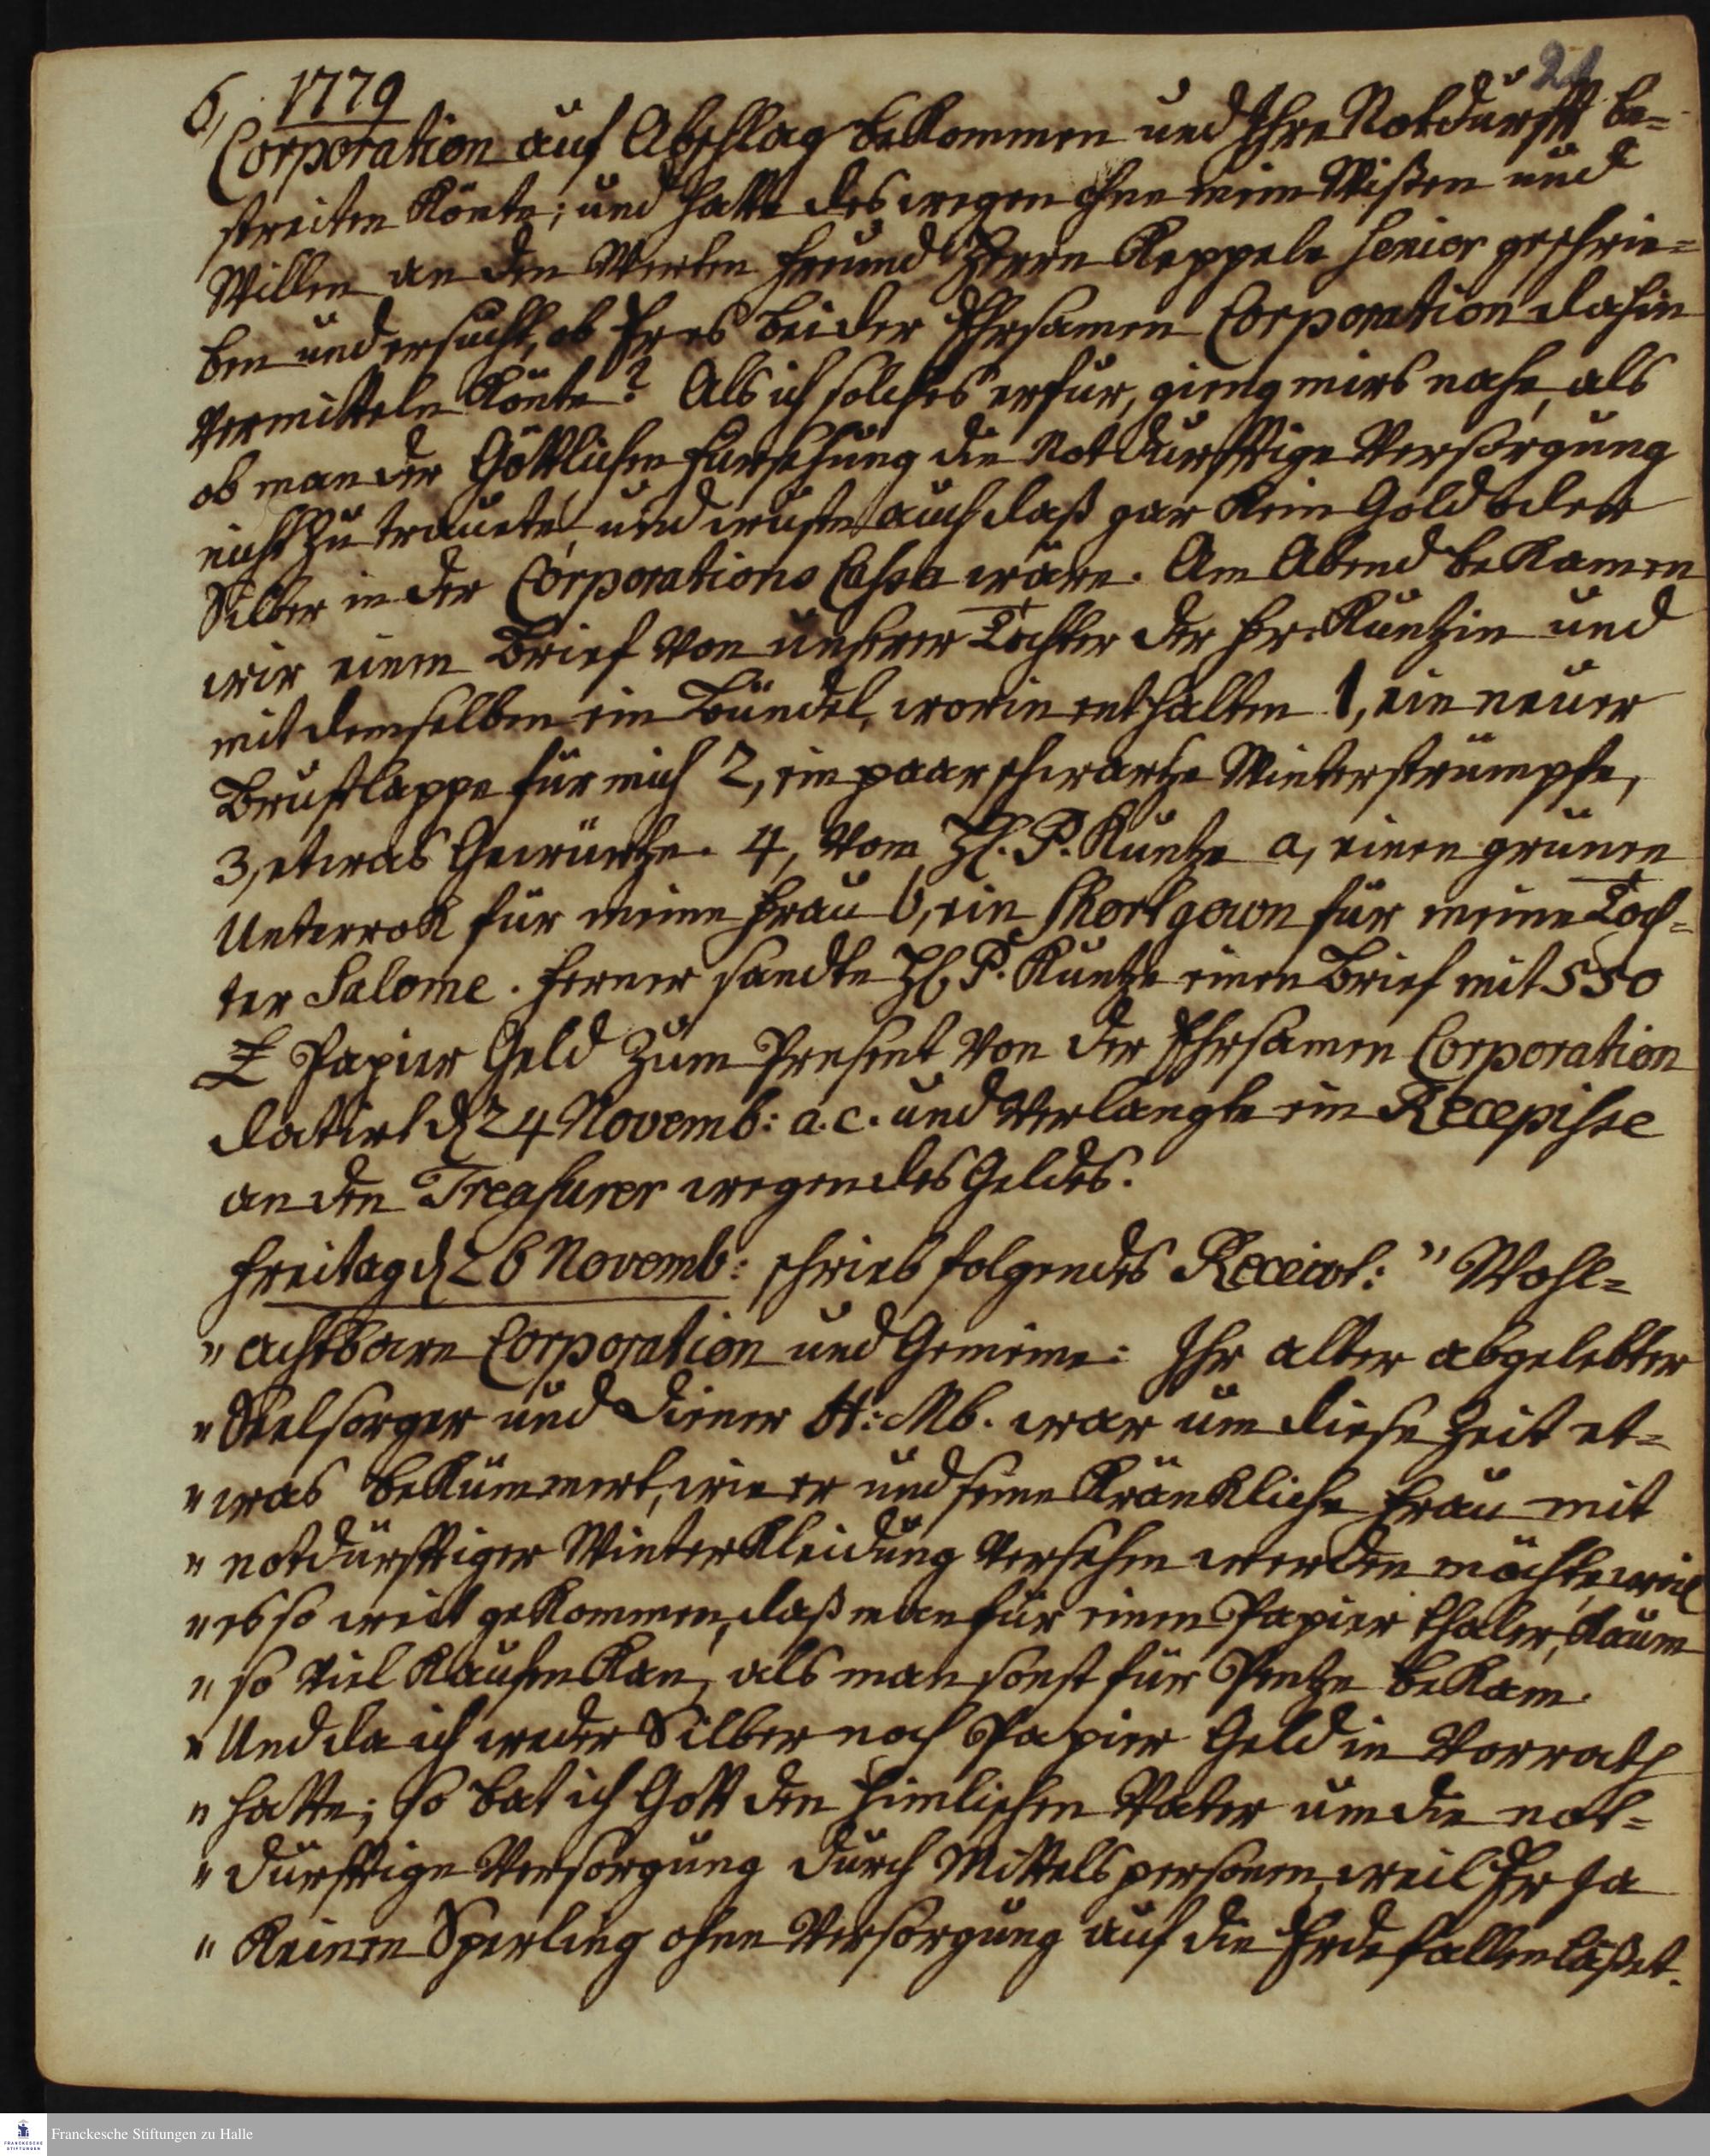 6, 1779
21
Corporation auf Abschlag bekommen und Ihre Notdurfft be=
streiten könte; und hatte deswegen ohne mein Wißen und
Willen an den Werten Freund Herrn Keppele Senior geschrie=
ben und ersucht, ob Er es bei der Ehrsamen Corporation dahin
vermitteln könte? Als ich solches erfur, gieng mirs nahe, als
ob man der Göttlichen Fursehung die Notdurfftige Versorgung
nicht zu trauete, und wuste auch daß gar kein Gold oder
Silber in der Corporations Cassa wäre. Am Abend bekamen
wir einen Brief von unserer Tochter der Fr. Kuntzin und
mit demselben ein Bündel, worin enthalten 1, ein neuer
Brustlappe für mich 2, ein paar schwartze Winterstrümpfe,
3, etwas Gewürtze. 4, vom H. P. Kuntze a, einen grünen
Unterrok für meine Frau b, ein Shortgown für meine Toch=
ter Salome. Ferner sandte H. P. Kuntze einen Brief mit 550
£ Papier Geld zum Present von der Ehrsamen Corporation
datirt d 24 Novemb: a. c. und verlangte ein Recepisse
an den Treasurer wegen des Geldes.
Freitag d 26 Novemb: schrieb folgendes Receipt: " Wohl=
" achtbare Corporation und Gemeine: Ihr alter abgelebter
" Seelsorger und Diener H: Mb. war um diese Zeit et=
" was bekümmert, wie er und seine kränkliche Frau mit
" notdürfftiger Winterkleidung versehen werden möchte, weil
" es so weit gekommen, daß man für einen Papier thaler, kaum
" so viel kaufen kan, als man sonst für Pentze bekam.
" Und da ich weder Silber noch Papier Geld in Vorrath
" hatte; so bat ich Gott den himlischen Vater um die not=
" durfftige Versorgung durch Mittels personen, weil Er ja
" keinen Sperling ohne Versorgung auf die Erde fallen läßet.
Franckesche Stiftungen zu Halle